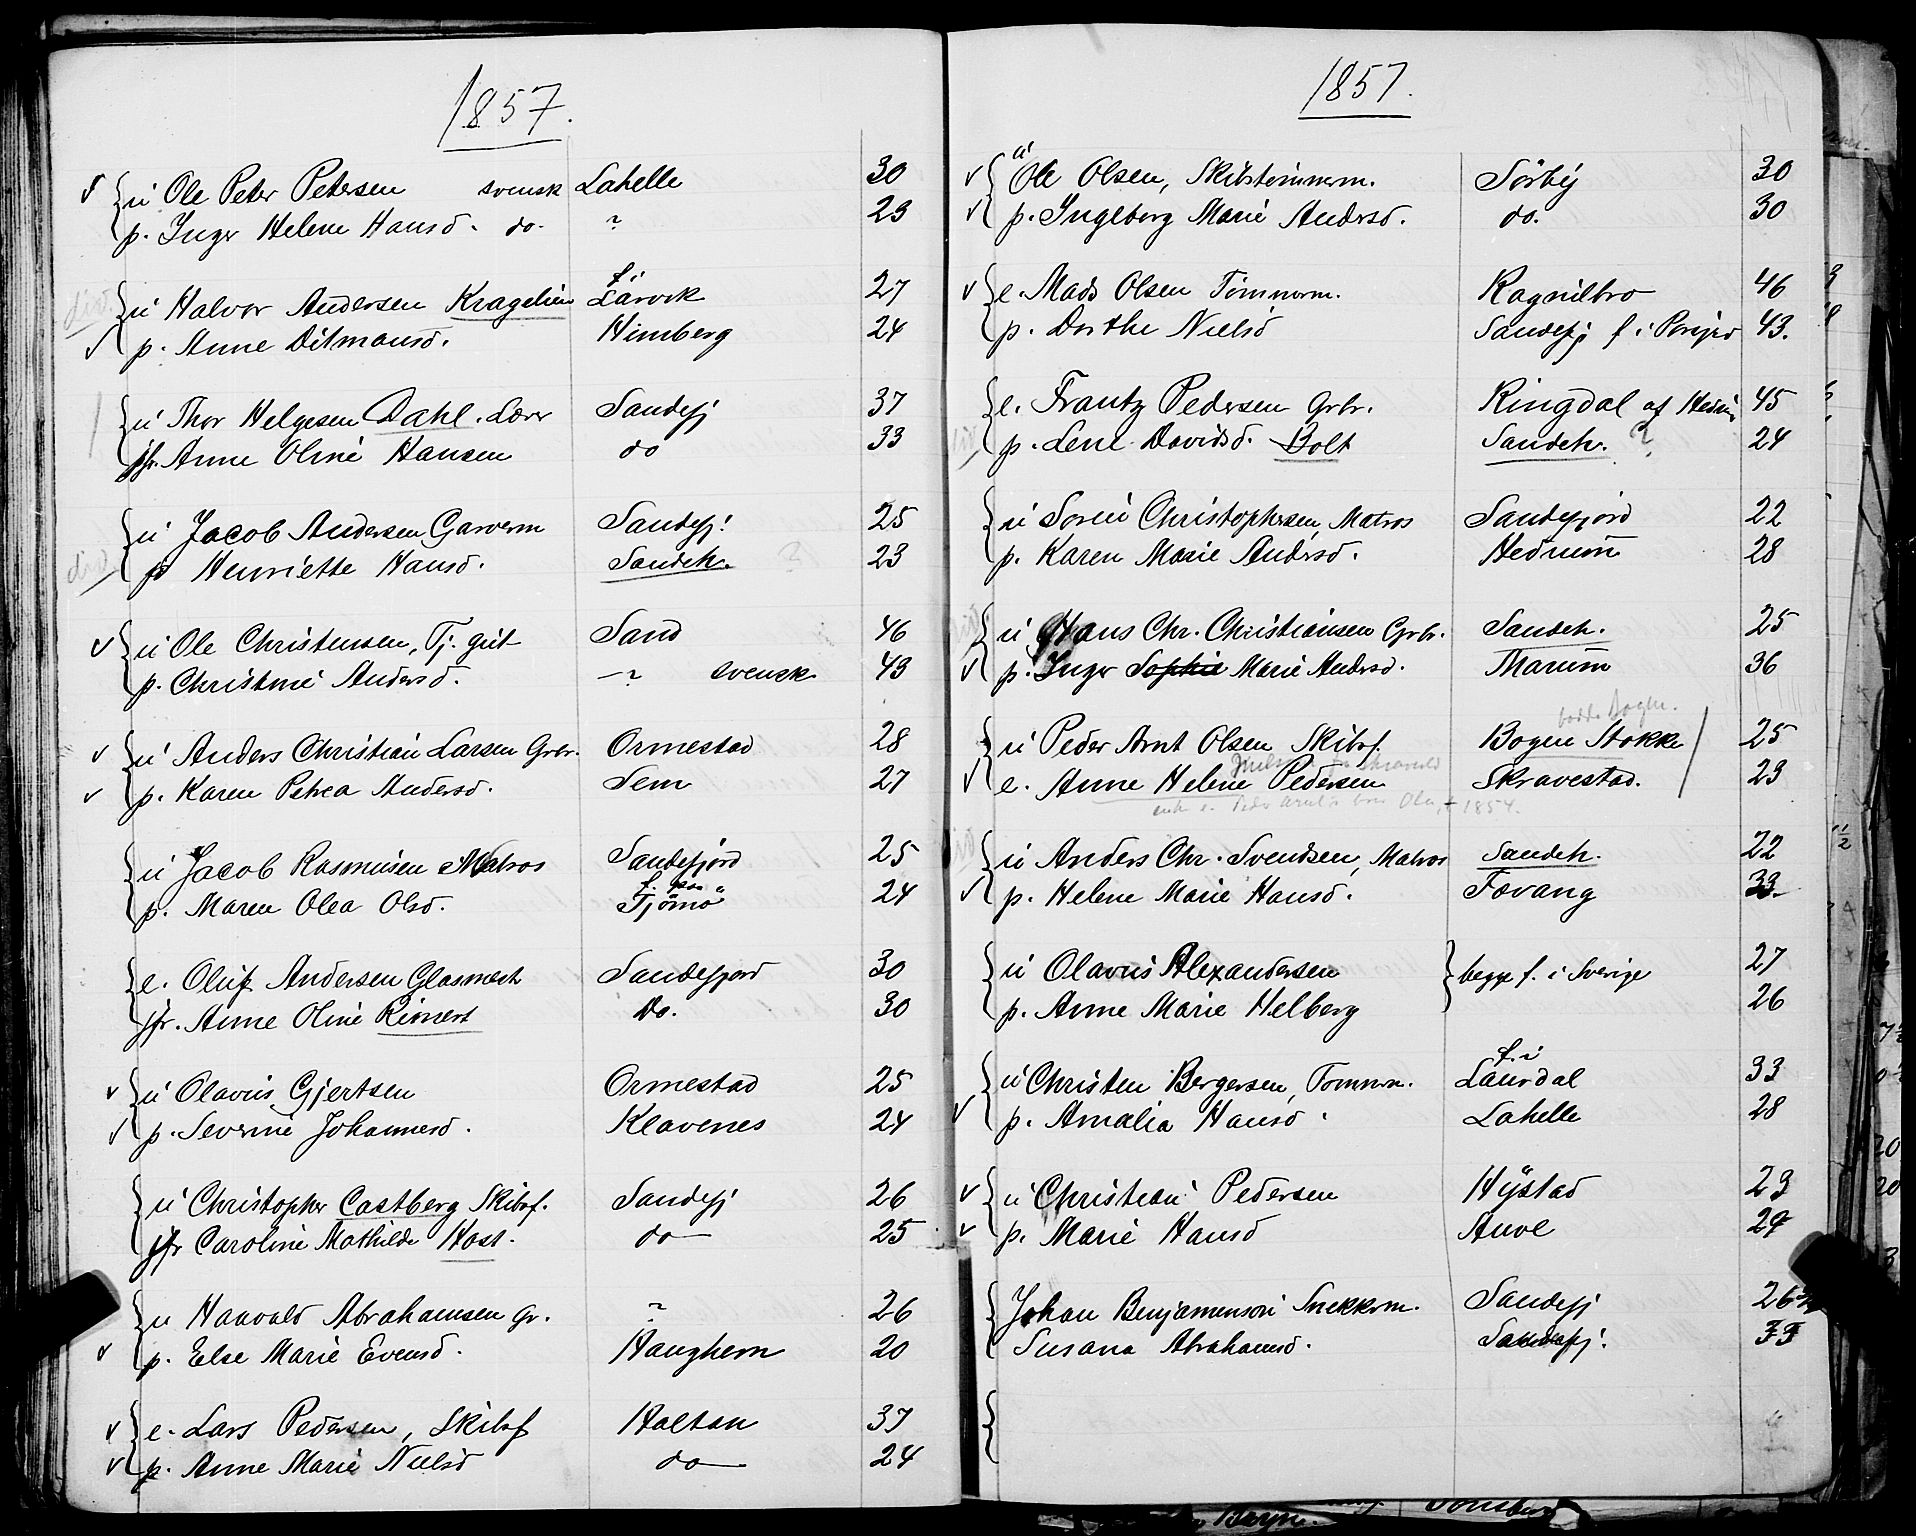 1857.
u Ole Peter Petersen svensk Lahelle 30
p. Inger Helene Hansd. do. ? 23
u Halvor Andersen Kragelien f i Larvik 27
p. Anne Ditmansd. Himberg 24
u Thor Helgesen Dahl. Lærer Sandefj 37
jfr. Anne Oline Hansen do 33
u Jacob Andersen Garverm Sandefj. 25
p Henriette Hansd. Sandeh. ? 23
u Ole Christensen, Tj. gut Sand 46
p. Christine Andersd. —? svensk 43
u Anders Christian Larsen Grbr. Ormestad 28
p. Karen Petrea Andersd. Sem 27
u Jacob Rasmusen Matros Sandefjord 25
p. Maren Olea Olsd. f. paa Tjömö 24
e. Oluf Andersen Glasmest Sandefjord 30
jfr. Anne Oline Rionert Do. 30
u Olavus Gjertsen Ormestad 25
p. Severine Johannesd. Klavenes 24
u Christopher Castberg Skibsf. Sandefj 26
jfr Caroline Mathilde Høst. do 25
u Haavald Abrahamsen Gr. ? 26
p. Else Marie Evensd. Haughem 20
e. Lars Pedersen, Skibsf Haltan 37
p. Anne Marie Nielsd do 24
1857.
u Ole Olsen, Skibstömmerm. Sörby 30
p. Ingeborg Marie Andersd. do. 30
e. Mads Olsen Tömmerm. Ragnilbro 46
p. Dorthe Nielsd Sandefj f i Porsgrd 43.
e. Frantz Pedersen Grbr. Ringdal af Hedrum 45
p. Lene Davidsd. Bolt Sandeh. ? 24
u Soren Christophersen, Matros Sandefjord 22
p. Karen Marie Andersd. Hedrum 28
u Hans Chr. Christiansen Grbr. Sandeh. 25
p. Inger Sophie Marie Andersd. Marum 36
u Peder Arnt Olsen Skibsf. Bogen Stokke 25
e. Anne Helene Pedersen Skravestad. 23
1854.
u Anders Chr. Svendsen, Matros Sandeh. 22
p. Helene Marie Hansd. Fævang 33
u Olavus Alexandersen begge f. i Sverige 27
p. Anne Marie Helberg 26
u Christen Bergersen, Tommrm. f. i Laurdal 33
p. Amalia Hansd. Lahelle 28
u Christian Pedersen Hystad 23
p. Marie Hansd Auve 27
Johan Benjamensen Snekkerm. Sandefj 26
Susana Abrahamsd. Sandefj.